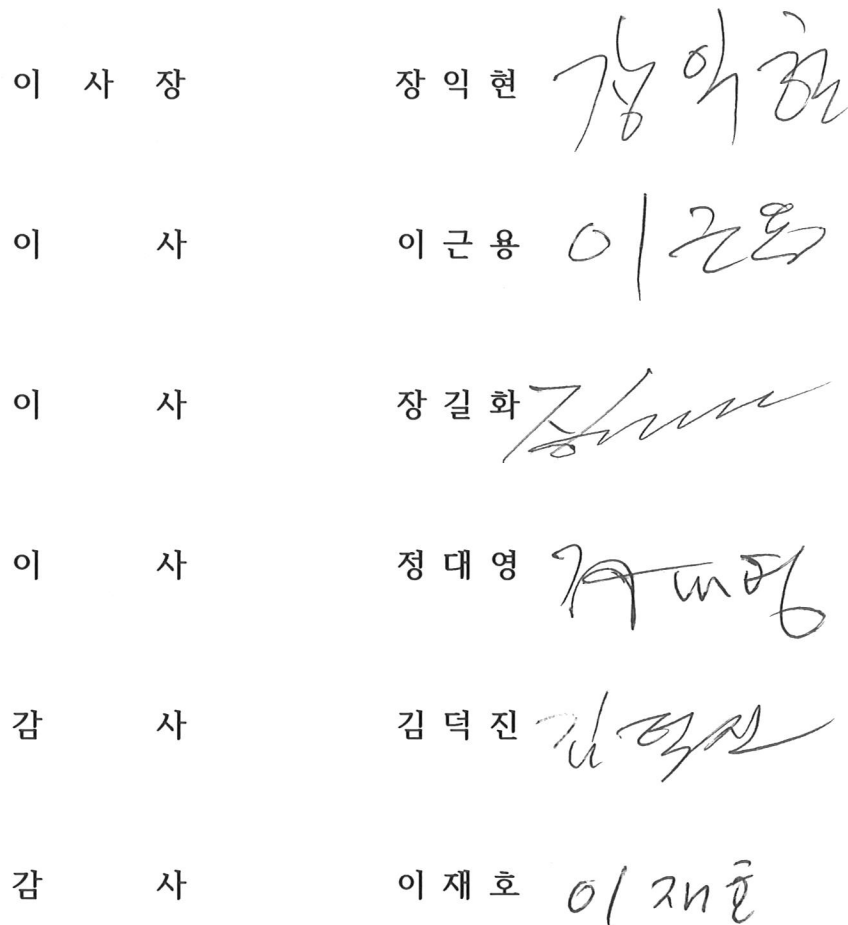 이 사 장 장 익 현 장익현
이 사 이 근 용 이근용
이 사 장 길 화
이 사 정 대 영 정대영
감 사 김 덕 진 김덕진
감 사 이 재 호 이재호